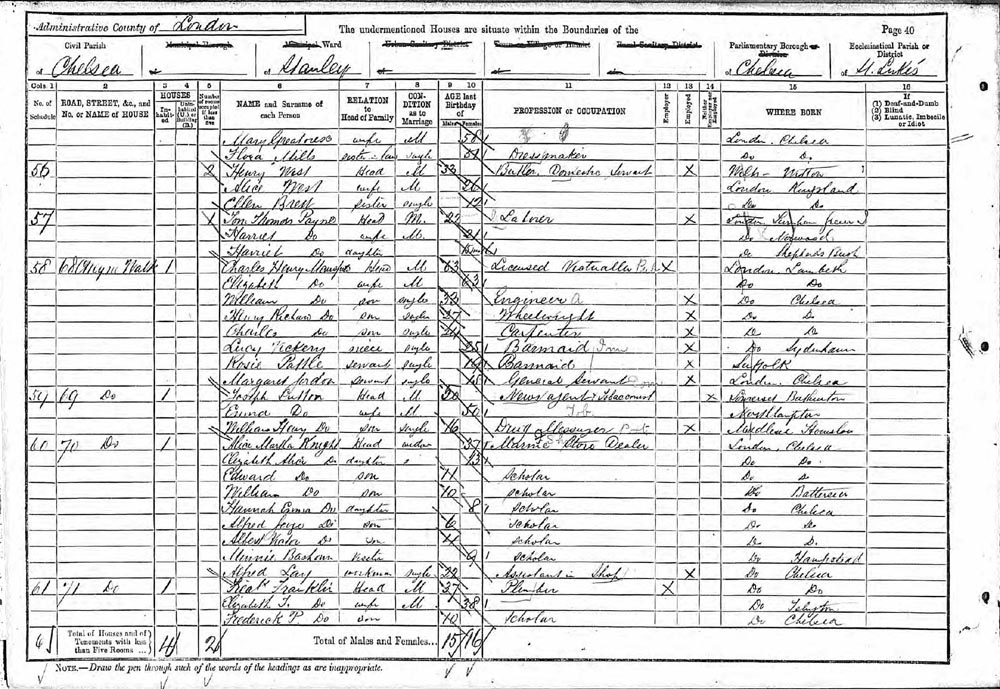 Administrative County of London
The undermentioned Houses are situate within the Boundaries of the
Page 40
Civil Parish of Chelsea
Municipal Borough of
Municipal Ward of Stanley
Urban Sanitary District of
Town or Village or Hamlet of
Rural Sanitary District of
Parliamentary Borough or Division of Chelsea
Ecclesiastical Parish or District of St. Luke's
Cols 1 2 3 4 5 6 7 8 9 10 11 12 13 14 15 16
No. of Schedule
ROAD, STREET, &c., and No. or NAME of HOUSE
HOUSES
Inhabited
Uninhabited (U.) or Building (B.)
Number of rooms occupied if less than five
NAME and Surname of each Person
RELATION to Head of Family
CONDITION as to Marriage
AGE last Birthday of
Males Females
PROFESSION or OCCUPATION
Employer
Employed
Neither Employer nor Employed
WHERE BORN
If (1) Deaf-and-Dumb (2) Blind (3) Lunatic, Imbecile or Idiot
Mary wife M 58 London Chelsea
Flora Mills sister in law single 51 Dressmaker Do Do
56 2 Henry West Head M 33 Butler Domestic Servant X Wilts
Alice West wife M 26 London Kingsland
Ellen sister single 12 Do Do
57 1 Thomas Payne Head M 22 Labrer X London
Harriet Do wife M 21 Do Norwood
Harriet Do daughter Do Shepherds Bush
58 68 Cheyne Walk 1 Charles Henry Head M 63 Licensed Victualler X London Lambeth
Elizabeth Do wife M 63 Do Do
William Do son single 32 Engineer X Do Chelsea
Henry Do son single 27 Wheelwright X Do Do
Charles Do son single 24 Carpenter X Do Do
Lucy Vickery niece single 25 Barmaid X Do Sydenham
Rosie servant single 19 Barmaid X Suffolk
Margaret servant single 18 General Servant X London Chelsea
59 69 Do 1 Joseph Sutton Head M 50 Newsagent Tobacconist X Somerset
Emma Do wife M 50 Northampton
William Henry Do son single 16 Drug Messenger X Middlesex Hounslow
60 70 Do 1 Alice Martha Knight Head widow 37 Marine Store Dealer London Chelsea
Elizabeth Alice Do daughter s 13 Do Do
Edward Do son 11 scholar Do Do
William Do son 10 scholar Do Battersea
Hannah Emma Do daughter 8 scholar Do Chelsea
Alfred Do son 6 scholar Do Do
Albert Victor Do son 4 scholar Do Do
Minnie visitor 9 scholar Do Hampstead
Alfred workman single 22 Assistant in Shop X Do Chelsea
61 71 Do 1 Franklin Head M 37 Plumber X Do Do
Elizabeth Do wife M 38 Do Islington
Frederick P. Do son 10 scholar Do Chelsea
Total of Houses and of Tenements with less than Five Rooms ... 4 2
Total of Males and Females... 15 16
NOTE.—Draw the pen through such of the words of the headings as are inappropriate.